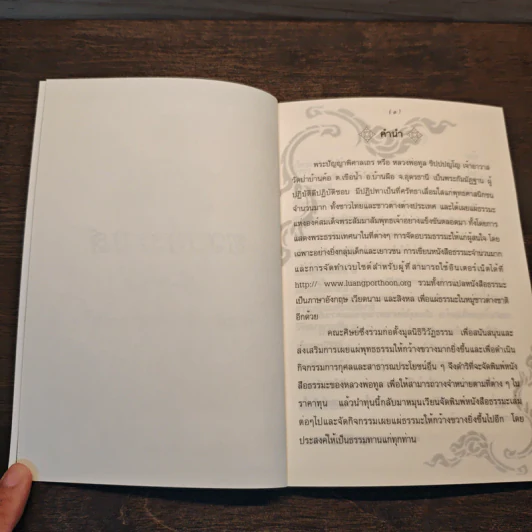 (๑)
คำนำ
พระปัญญาพิศาลเถร หรือ หลวงพ่อทูล ขิปฺปปญฺโญ เจ้าอาวาส
วัดป่าบ้านค้อ ต.เขือน้ำ อ.บ้านผือ จ.อุดรธานี เป็นพระกัมมัฏฐาน ผู้
ปฏิบัติดีปฏิบัติชอบ มีปฏิปทาเป็นที่ศรัทธาเลื่อมใสแก่พุทธศาสนิกชน
จำนวนมาก ทั้งชาวไทยและชาวต่างต่างประเทศ และได้เผยแผ่ธรรมะ
แห่งองค์สมเด็จพระสัมมาสัมพุทธเจ้าอย่างแข็งขันตลอดมา ทั้งโดยการ
แสดงพระธรรมเทศนาในที่ต่างๆ การจัดอบรมธรรมะให้แก่ผู้สนใจ โดย
เฉพาะอย่างยิ่งกลุ่มเด็กและเยาวชน การเขียนหนังสือธรรมะจำนวนมาก
และการจัดทำเวบไซต์สำหรับผู้ที่สามารถใช้อินเตอร์เน็ตได้ที่
http:// www.luangporthoon.org รวมทั้งการแปลหนังสือธรรมะ
เป็นภาษาอังกฤษ เวียดนาม และสิงหล เพื่อแผ่ธรรมะในหมู่ชาวต่างชาติ
อีกด้วย
คณะศิษย์ซึ่งร่วมก่อตั้งมูลนิธิวิวัฏธรรม เพื่อสนับสนุนและ
ส่งเสริมการเผยแผ่พุทธธรรมให้กว้างขวางมากยิ่งขึ้นและเพื่อดำเนิน
กิจกรรมการกุศลและสาธารณประโยชน์อื่น ๆ จึงดำริที่จะจัดพิมพ์หนัง
สือธรรมะของหลวงพ่อทูล เพื่อให้สามารถวางจำหน่ายตามที่ต่าง ๆ ใน
ราคาทุน แล้วนำทุนนี้กลับมาหมุนเรียนจัดพิมพ์หนังสือธรรมะเล่ม
ต่อๆไปและจัดกิจกรรมเผยแผ่ธรรมะให้กว้างขวางยิ่งขึ้นไปอีก โดย
ประสงค์ให้เป็นธรรมทานแก่ทุกท่าน